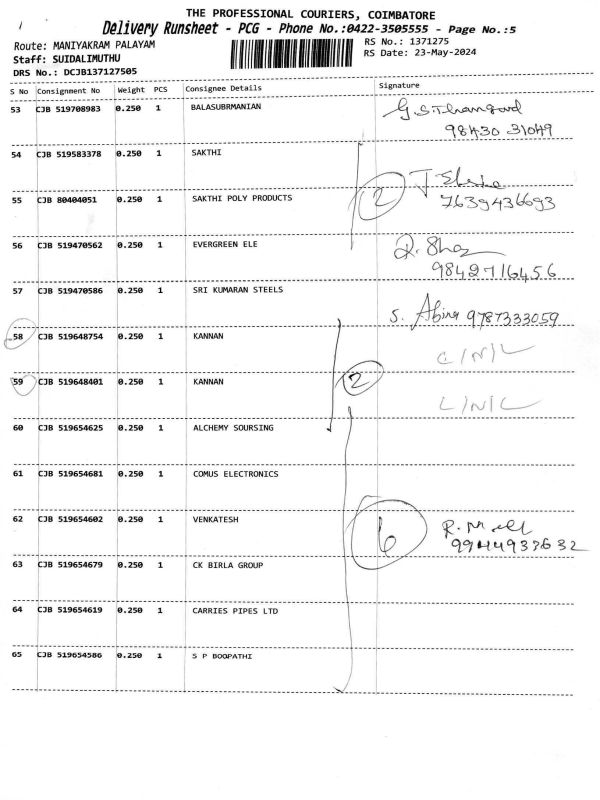 THE PROFESSIONAL COURIERS, COIMBATORE
Delivery Runsheet - PCG - Phone No.:0422-3505555 - Page No.:5
Route: MANIYAKRAM PALAYAM
RS No.: 1371275
Staff: SUIDALIMUTHU
RS Date: 23-May-2024
DRS No.: DCJB137127505
S No Consignment No Weight PCS Consignee Details Signature
53 CJB 519708983 0.250 1 BALASUBRMANIAN
98430 31049
54 CJB 519583378 0.250 1 SAKTHI
55 CJB 80404051 0.250 1 SAKTHI POLY PRODUCTS 2 7639436693
56 CJB 519470562 0.250 1 EVERGREEN ELE
9842716456
57 CJB 519470586 0.250 1 SRI KUMARAN STEELS
S. Abina 9787333059
58 CJB 519648754 0.250 1 KANNAN
59 CJB 519648401 0.250 1 KANNAN 2
60 CJB 519654625 0.250 1 ALCHEMY SOURSING
61 CJB 519654681 0.250 1 COMUS ELECTRONICS
62 CJB 519654602 0.250 1 VENKATESH 6
9944937632
63 CJB 519654679 0.250 1 CK BIRLA GROUP
64 CJB 519654619 0.250 1 CARRIES PIPES LTD
65 CJB 519654586 0.250 1 S P BOOPATHI